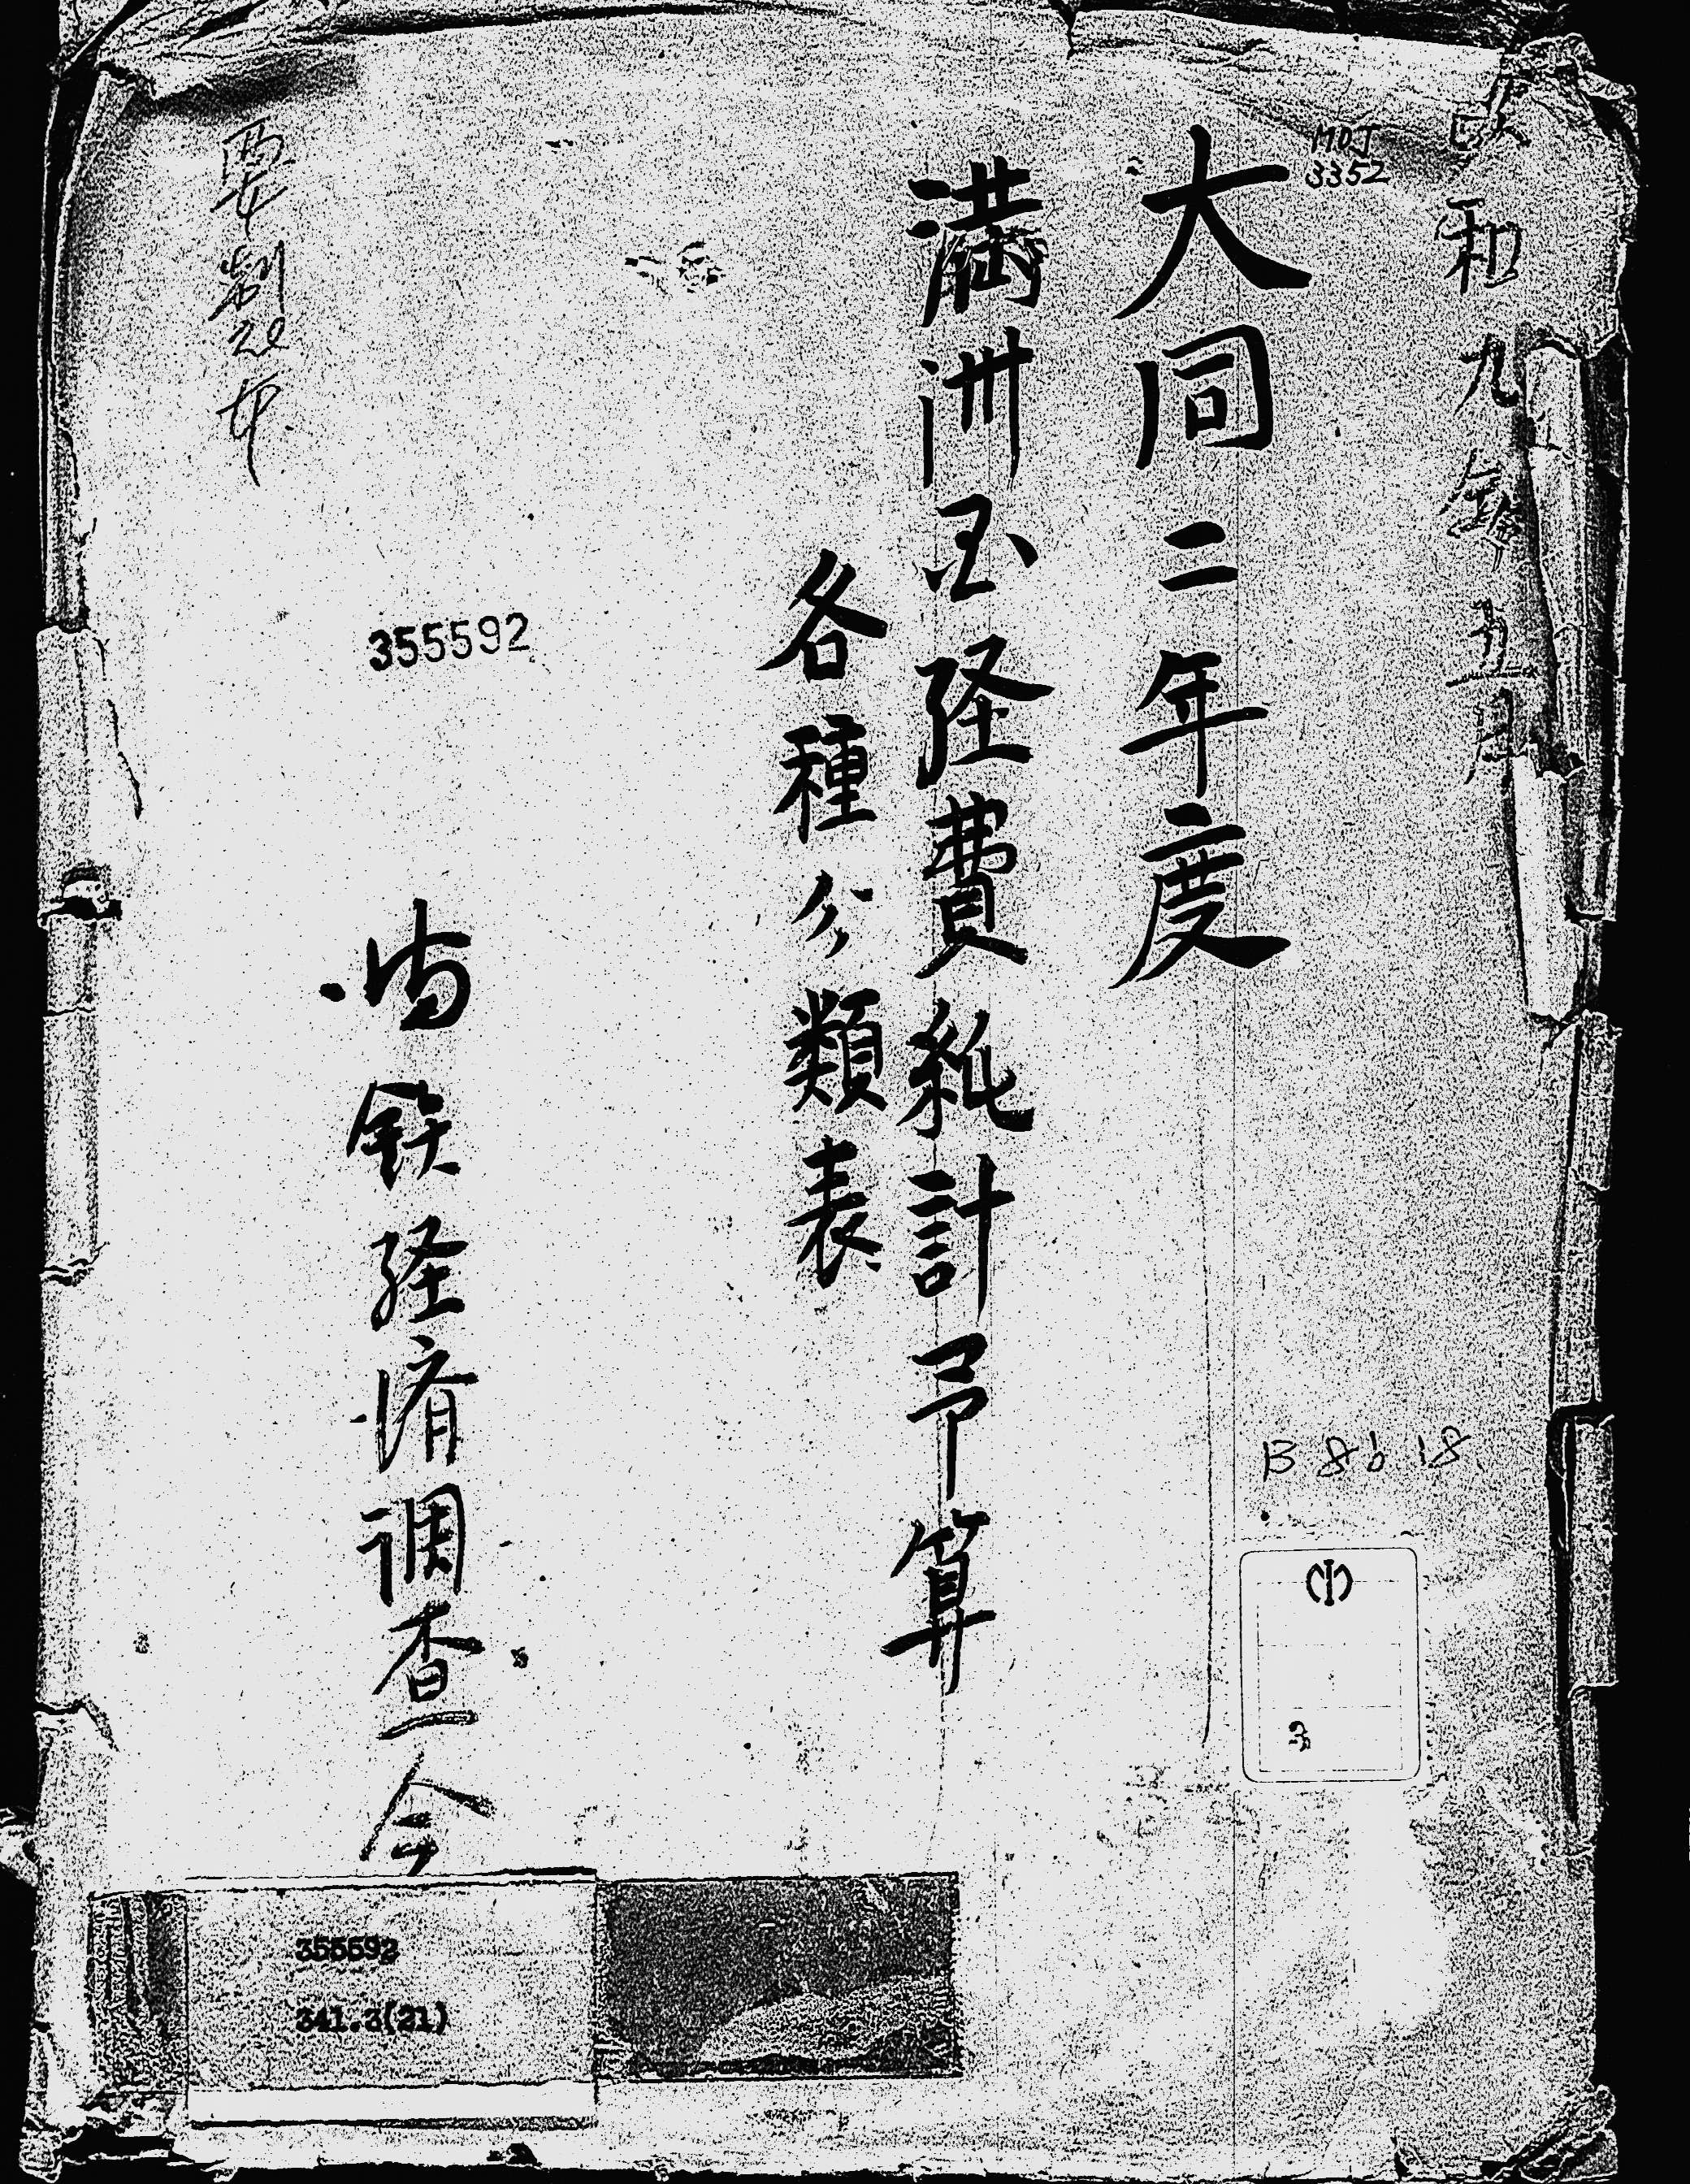 昭和九年五月
MOJ
3352
大同二年度
満洲国経費純計予算
各種分類表
満鉄経済調査会
要刷20部
355592
B 8b 18
3
355592
341.2(21)